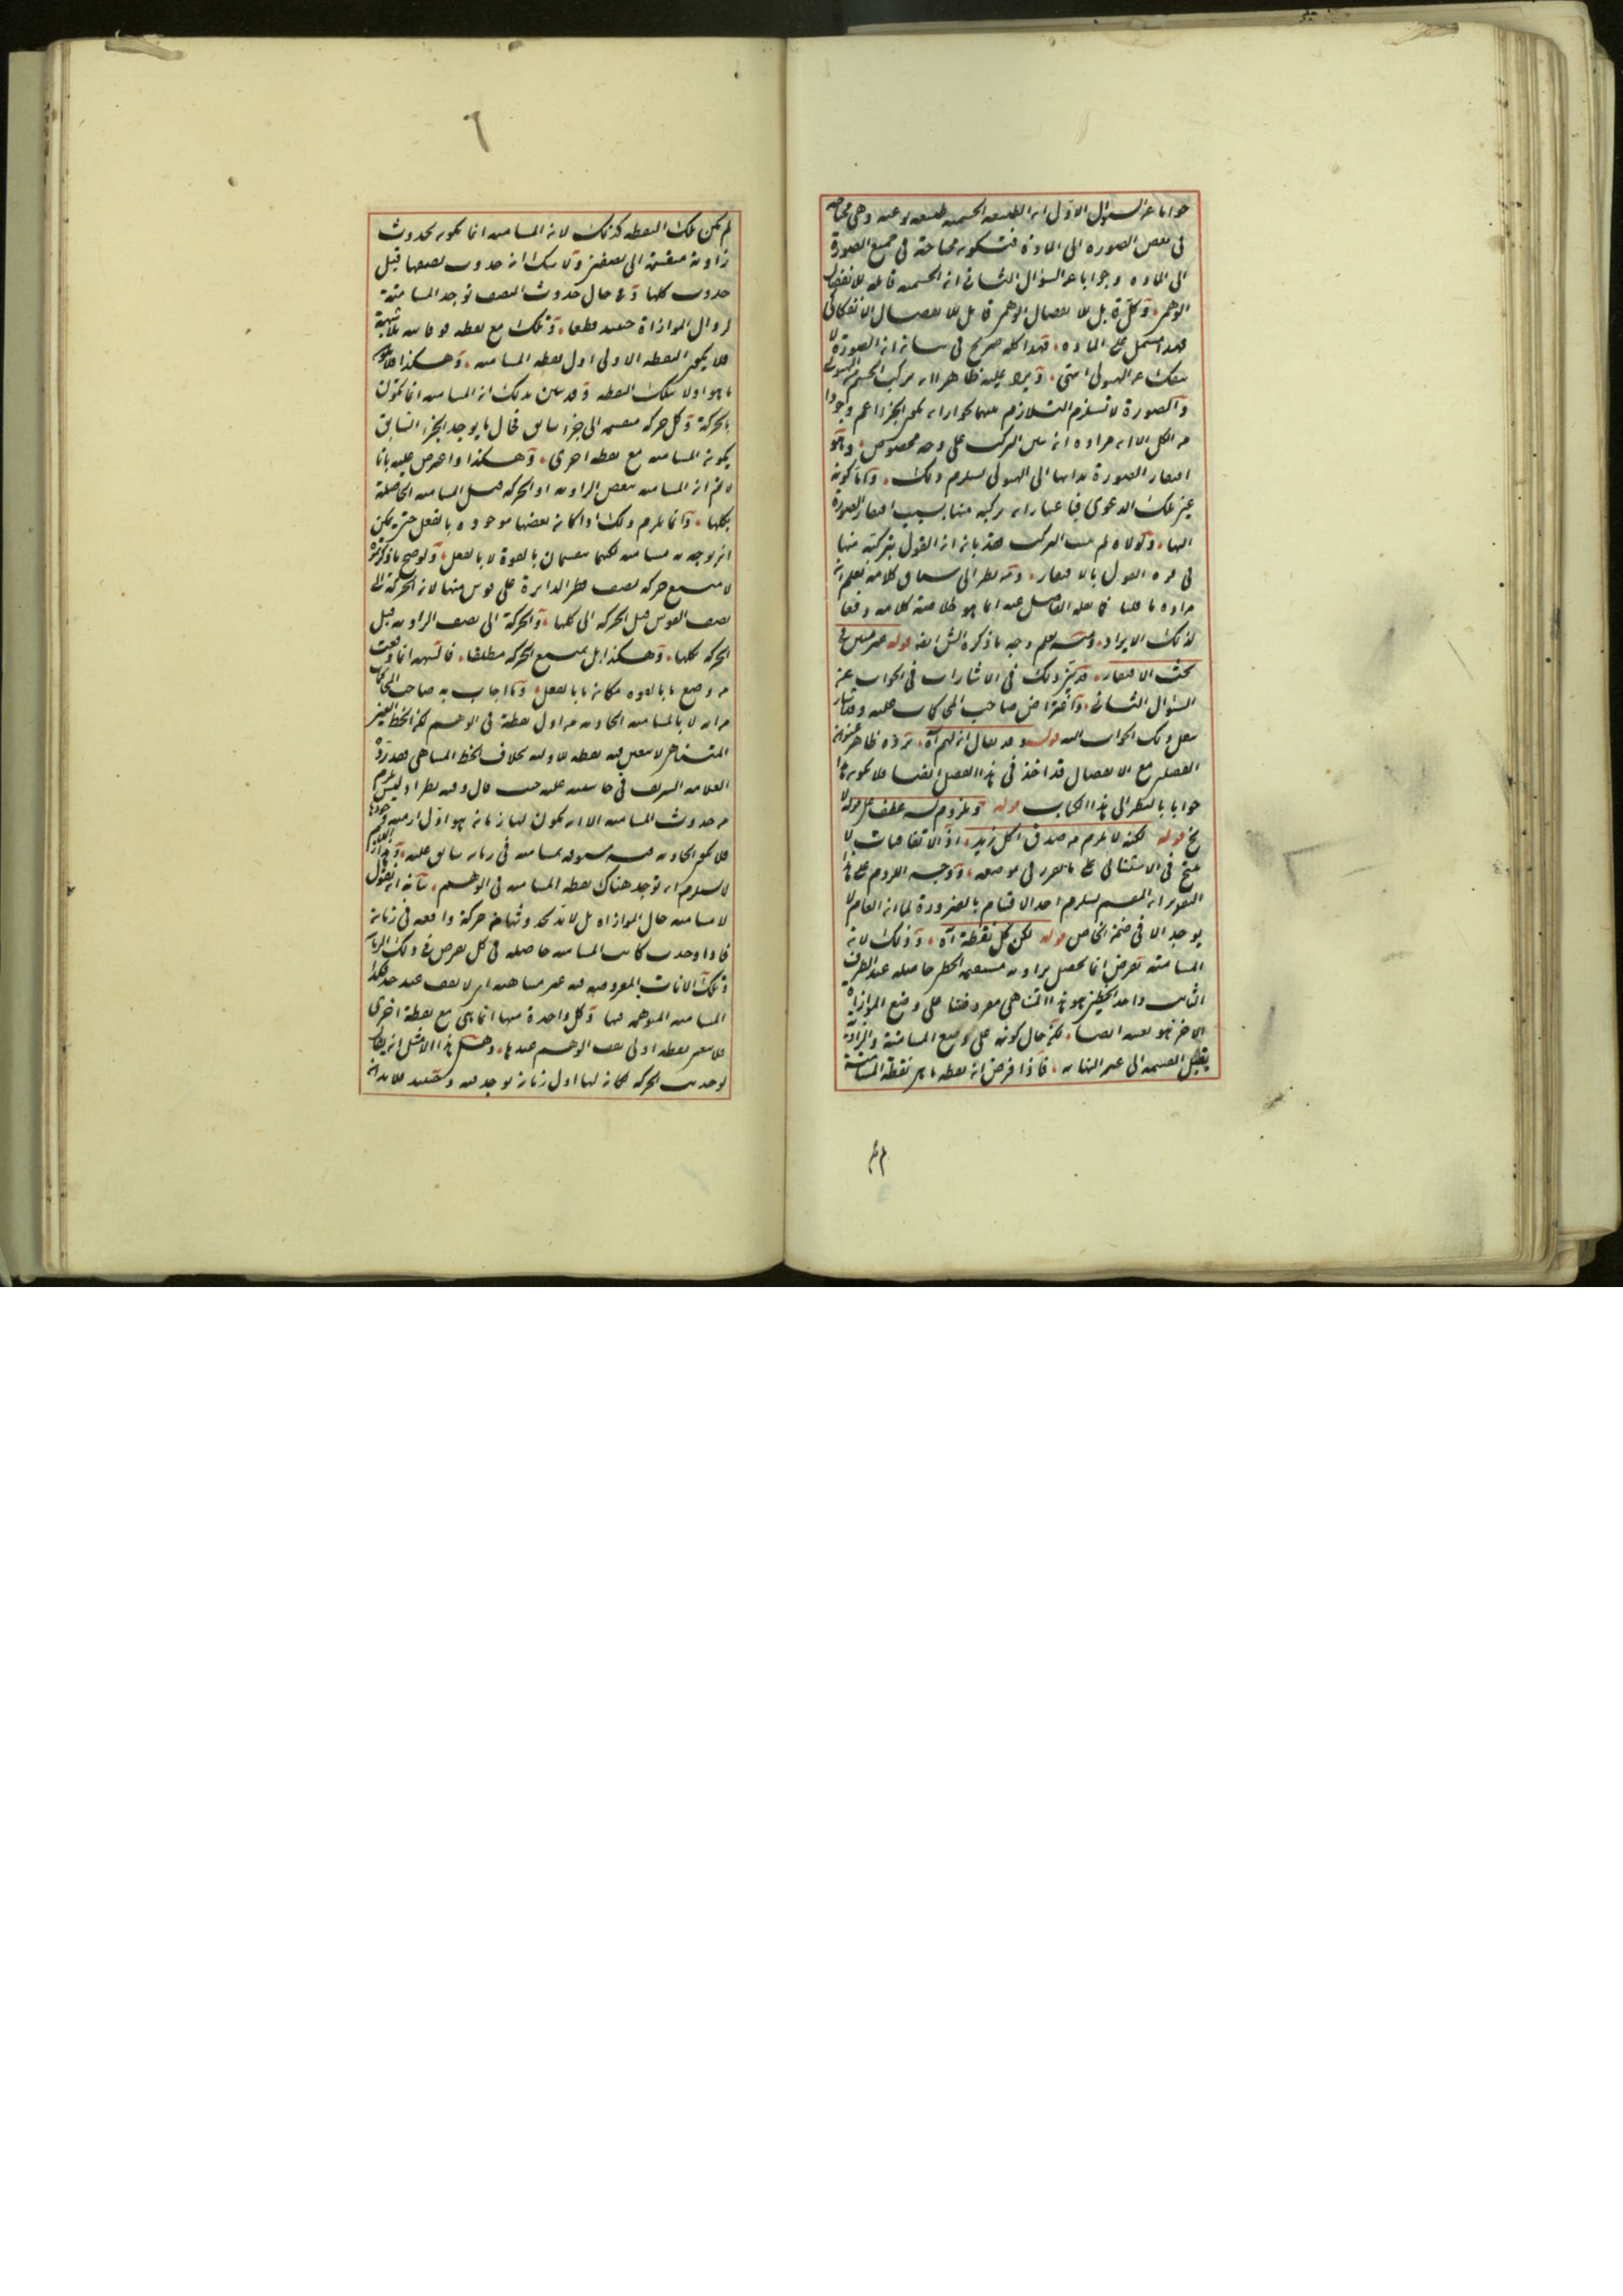 جوابا عن السؤال الاول ان الطبيعه الجسميه طبيعه نوعيه وهى محتاجه
فى بعض الصوره الى المادة فتكون محتاجة فى جميع الصور
الى الماده وجوابا عن السؤال الثانى ان الجسميه قابله للانفصال
الوهمى وكل قابل للانفصال الوهمى قابل للانفصال الانفكاكى
فهو مشتمل على الماده فهذا كله صريح فى بيان ان الصورة لا
تنفك عن الهيولى انتهى ويرد عليه ظاهرا ان تركب الجسم من الهيولى
والصورة لا تستلزم التلازم بينهما لجواز ان يكون الجزء اعم وجودا
من الكل الا ان مراده انه بين التركب على وجه مخصوص وهو
افتقار الصورة بذاتها الى الهيولى يستلزم ذلك واما كونه
عين تلك الدعوى فباعتبار ان تركبه منها بسبب افتقار الصورة
اليها ولولاه لم يثبت التركب فكانه ان القول بتركبه منها
فى قوه القول بالافتقار ومن نظر الى سياق كلامه يعلم ان
مراده ما قلنا فما نقله الفاضل عنه انما هو خلاصة كلامه دفعا
لذلك الايراد ومنه يعلم وجه ما ذكره الش ايضا قوله
بحث الافتقار قد ذكر ذلك فى الاشارات فى الجواب عن
السؤال الثانى واعتراض صاحب المحاكمات عليه
نقل ذلك الجواب اليه قوله وقد يقال ان لهم آه
الفصل مع الانفصال قد اخذ فى هذا الفصل ايضا فلا يكون هذا
جوابا بالنظر الى هذا الكتاب قوله وملزومه عطف على قوله لا
ينتج قوله لكنه لا يلزم من صدق اكل زيد اذ الاتفاقيات لا
ينتج فى الاستثنائى على ما تقرر فى موضعه ووجه اللزوم على هذا
التقدير ان المقسم يستلزم احد الاقسام بالضرورة لما ان العام لا
يوجد الا فى ضمن الخاص قوله لكن كل نقطة آه وذلك لان
المسامتة تعرض انما تحصل بزاويه مستقيمه الخطين حاصله عند الطرف
الثابت واحد الخطين هو هذا المتناهى مفروضا على وضع الموازاة
الاخر هو بعينه ايضا لكن حال كونه على وضع المسامتة والزاوية
يقبل القسمه الى غير النهايه فاذا فرض ان نقطه ما هى نقطة المسامتة
لم يكن تلك النقطه كذلك لان المسامته انما يكون بحدوث
زاوية منقسمة الى نصفين ولا شك ان حدوث نصفها قبل
حدوث كلها وفى حال حدوث النصف توجد المسامتة
لزوال الموازاة حينئذ قطعا وذلك مع نقطه فوقانيه بلا شبهة
فلا يكون النقطه الاولى اول نقطه المسامته وهكذا
ما هو اولا بتلك النقطه وقد يبين ذلك ان المسامته انما تكون
بالحركة وكل حركه منقسمه الى جزء سابق فحال ما يوجد الجزء السابق
يكون المسامته مع نقطه اخرى وهكذا واعترض عليه بانا
لا نم ان المسامته ببعض الزاويه او الحركه قبل المسامته الحاصلة
بكلها وانما يلزم ذلك اذا كان بعضها موجوده بالفعل حتى يمكن
ان يوجد به مسامته لكنهما منقسمان بالقوة لا بالفعل ولو صح ما ذكرتموه
لامتنع حركه نصف قطر الدايرة على قوس منها لان الحركة الى
نصف القوس قبل الحركه الى كلها والحركة الى نصف الزاويه قبل
الحركه بكلها وهكذا بل يمتنع الحركه مطلقا فالشبهه انما وقعت
من وضع ما بالقوه مكان ما بالفعل وما اجاب به صاحب المحاكمات
من انه لا بد للمسامته الحادثه من اول نقطة فى الوهم لكن الخط الغير
المتناهى لا يتعين فيه نقطه للاوليه بخلاف الخط المتناهى فقد رده
العلامه الشريف فى حاشيته عليه حيث قال وفيه نظر اذ ليس يلزم
من حدوث المسامته الا ان يكون لها زمان هو اول ازمنه وجودها
فلا يكون الحادثه مسبوقه بمسامته فى زمان سابق عليه
لا يستلزم ان توجد هناك نقطه المسامته فى الوهم بيانه ان نقول
لا مسامته حال الموازاه بل لا بد لحدوثها من حركة واقعه فى زمان
فاذا وجدت كانت المسامته حاصله فى كل ان يعرض فى ذلك الزمان
وتلك الانات المفروضه فيه غير متناهيه اى لا يقف عند حد فكذا
المسامته المتوهمه فيها وكل واحدة منها انما هى مع نقطة اخرى
فلا يتعين نقطه اولى يقف الوهم عندها وهل هذا الا مثل ان يقال
لو حدثت الحركه لكان لها اول زمان يوجد فيه وحينئذ فلا بد ان